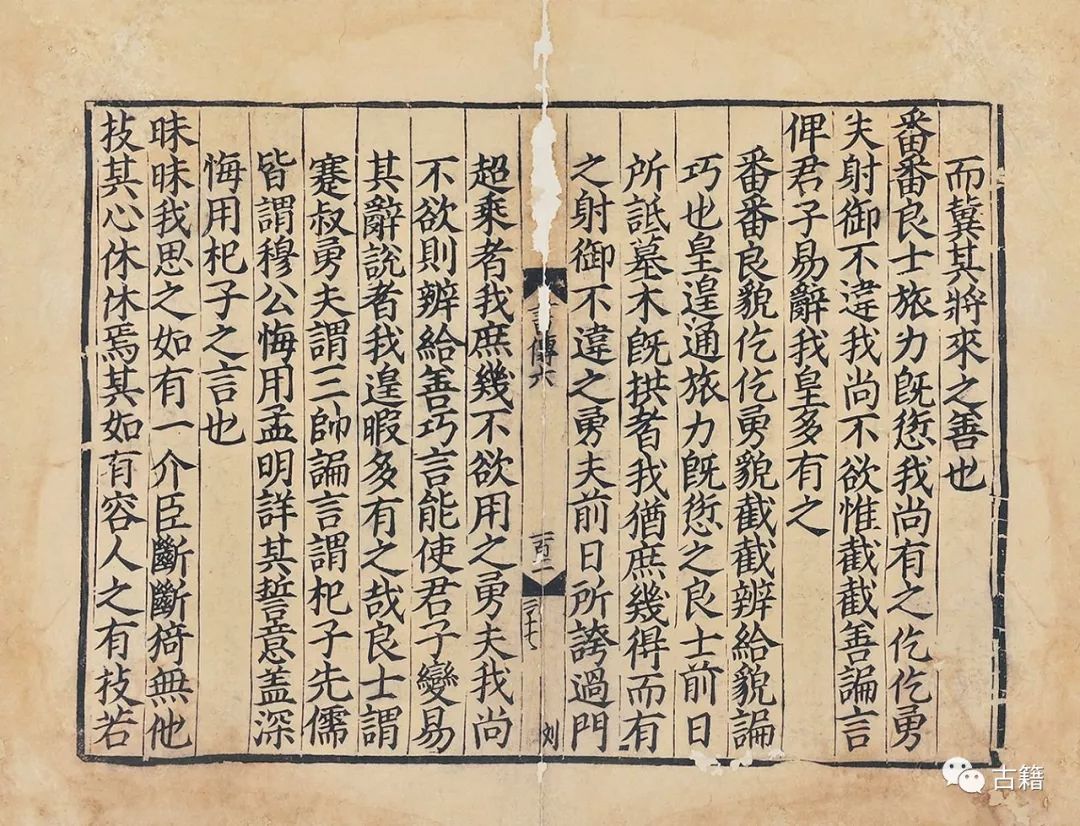 而冀其將來之善也
番番良士旅力旣愆我尚有之仡仡勇
夫射御不違我尚不欲惟截截善諞言
俾君子易辭我皇多有之
番番良貌仡仡勇貌截截辨給貌諞
巧也皇遑通旅力旣愆之良士前日
所詆墓木旣拱者我猶庶幾得而有
之射御不違之勇夫前日所誇過門
傳六
刘
超乘者我庶幾不欲用之勇夫我尚
不欲則辨給善巧言能使君子變易
其辭說者我遑暇多有之哉良士謂
蹇叔勇夫謂三帥諞言謂杞子先儒
皆謂穆公悔用孟明詳其誓意盖深
悔用杞子之言也
昧昧我思之如有一介臣斷斷猗無他
技其心休休焉其如有容人之有技若
古籍